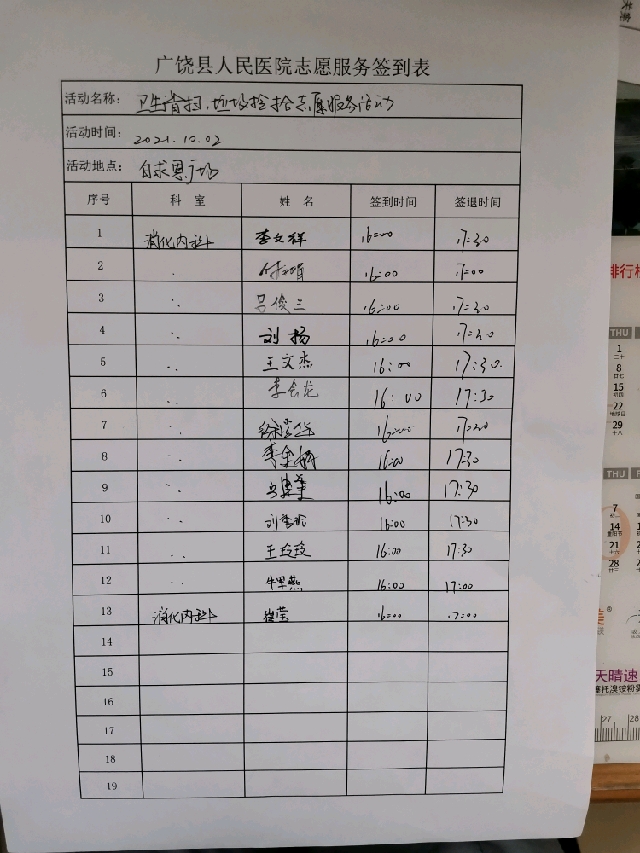 广饶县人民医院志愿服务签到表
活动名称: 卫生清扫、垃圾捡拾志愿服务活动
活动时间: 2021.10.02
活动地点:
序号 科室 姓名 签到时间 签退时间
1 消化内科 李文祥 16:00 17:30
2 16:00 17:00
3 吕俊三 16:00 17:30
4 刘扬 16:00 17:30
5 王文杰 16:00 17:30
6 李会龙 16:00 17:30
7 16:00 17:30
8 16:00 17:30
9 16:00 17:30
10 16:00 17:30
11 王玲玲 16:00 17:30
12 16:00 17:00
13 消化内科 崔莹 16:00 17:00
14
15
16
17
18
19
排行榜
THU
1
8
15
22
29
THU
7
14
21
28
天晴速
27 28